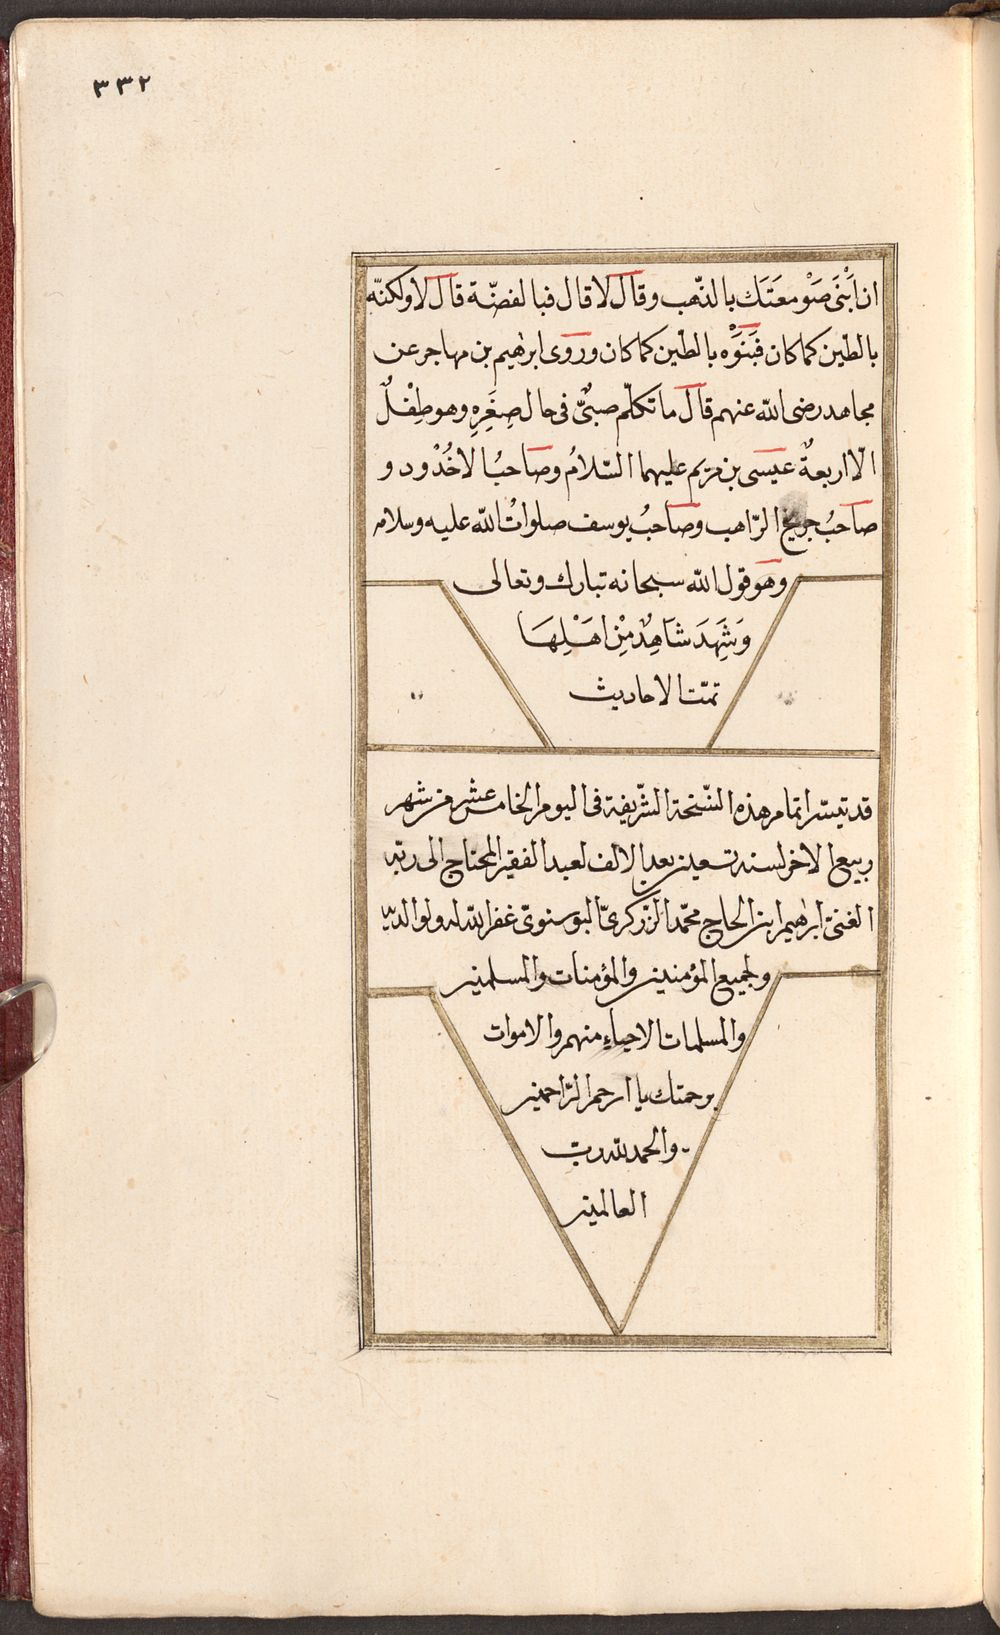 ٣٣٢
ان اَبْنَى صَوْمعَتَك بالذّهب وقال لا قال فبالفضّة قال لا ولكنّه
بالطّين كما كان فبَنَوْه بالطّين كما كان وروى ابرهيم بن مهاجر عن
مجاهد رضى الله عنهم قال ما تكلّم صبىٌّ فى حال صِغَرِهِ وهو طِفْلٌ
الّا اربعةٌ عيسى بن مريم عليهما السّلامُ وصاحبُ الاخُدْود و
صاحبُ جريج الرّاهب وصاحبُ يوسف صلواتُ الله عليه وسلامه
وهو قول الله سبحانه تبارك وتعالى
وَشَهِدَ شَاهِدٌ مِنْ اهَْلِهَا
تمّت الاحاديث
قد تيسّر اتمام هذه النّسخة الشّريفة فى اليوم الخامس عشر من شهر
ربيع الاخر لسنه تسعين بعد الالف لعبد الفقير المحتاج الى ربّه
الغنىّ ابرٰهيم ابن الحاج محمّد الزّركرىّ البوسنوىّ غفر الله له ولوالديه
ولجميع المؤمنين والمؤمنات والمسلمين
والمسلمات الاحياءِ منهم والاموات
برحمتك يا ارحم الرّاحمين
والحمد لله ربّ
العالمين